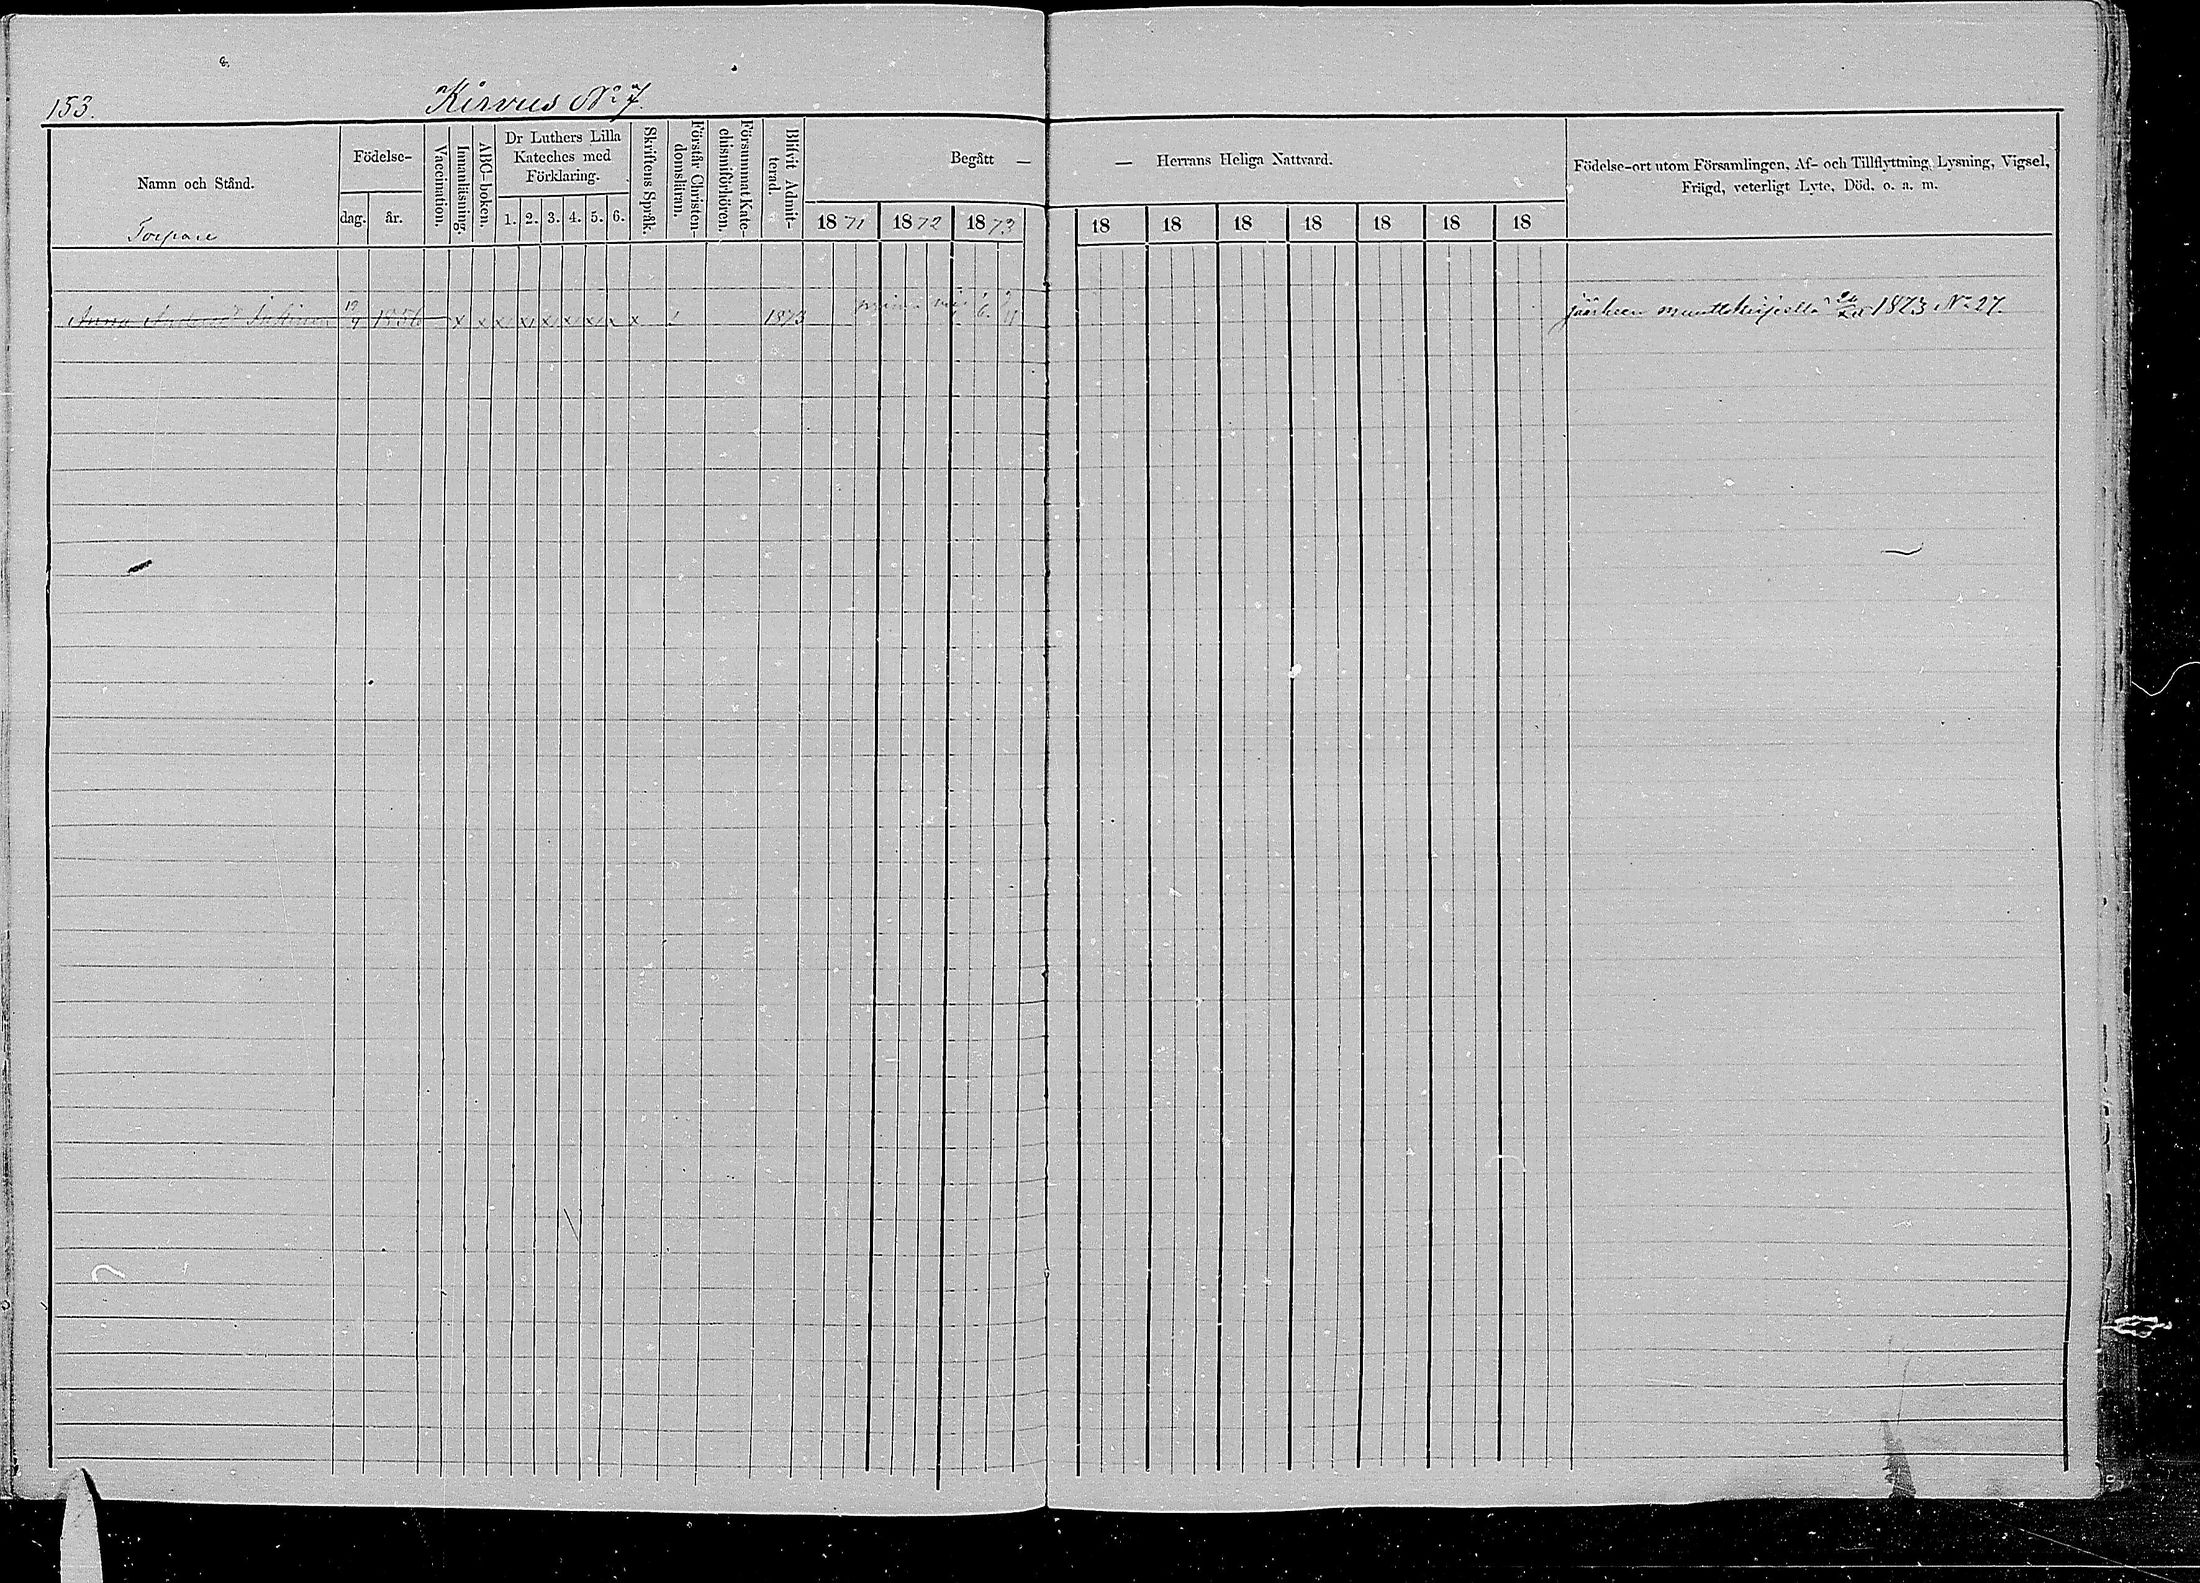 153.
Kirvus No 7.
Namn och Stånd.
Torpare
Födelse-
dag. år.
Vaccination.
Innanläsning.
ABC-boken.
Dr Luthers Lilla
Kateches med
Förklaring.
1. 2. 3. 4. 5. 6.
Skriftens Språk.
Förstår Christen-
domsläran.
Försummat Kate-
chismiförhören.
Blifvit Admit-
terad.
Begått —
— Herrans Heliga Nattvard.
1871 1872 1873
18 18 18 18 18 18 18
Födelse-ort utom Församlingen, Af- och Tillflyttning, Lysning, Vigsel,
Frägd, veterligt Lyte, Död, o. a. m.
Anna 1856 x x x x x x x x x 1873
1873 No 27.